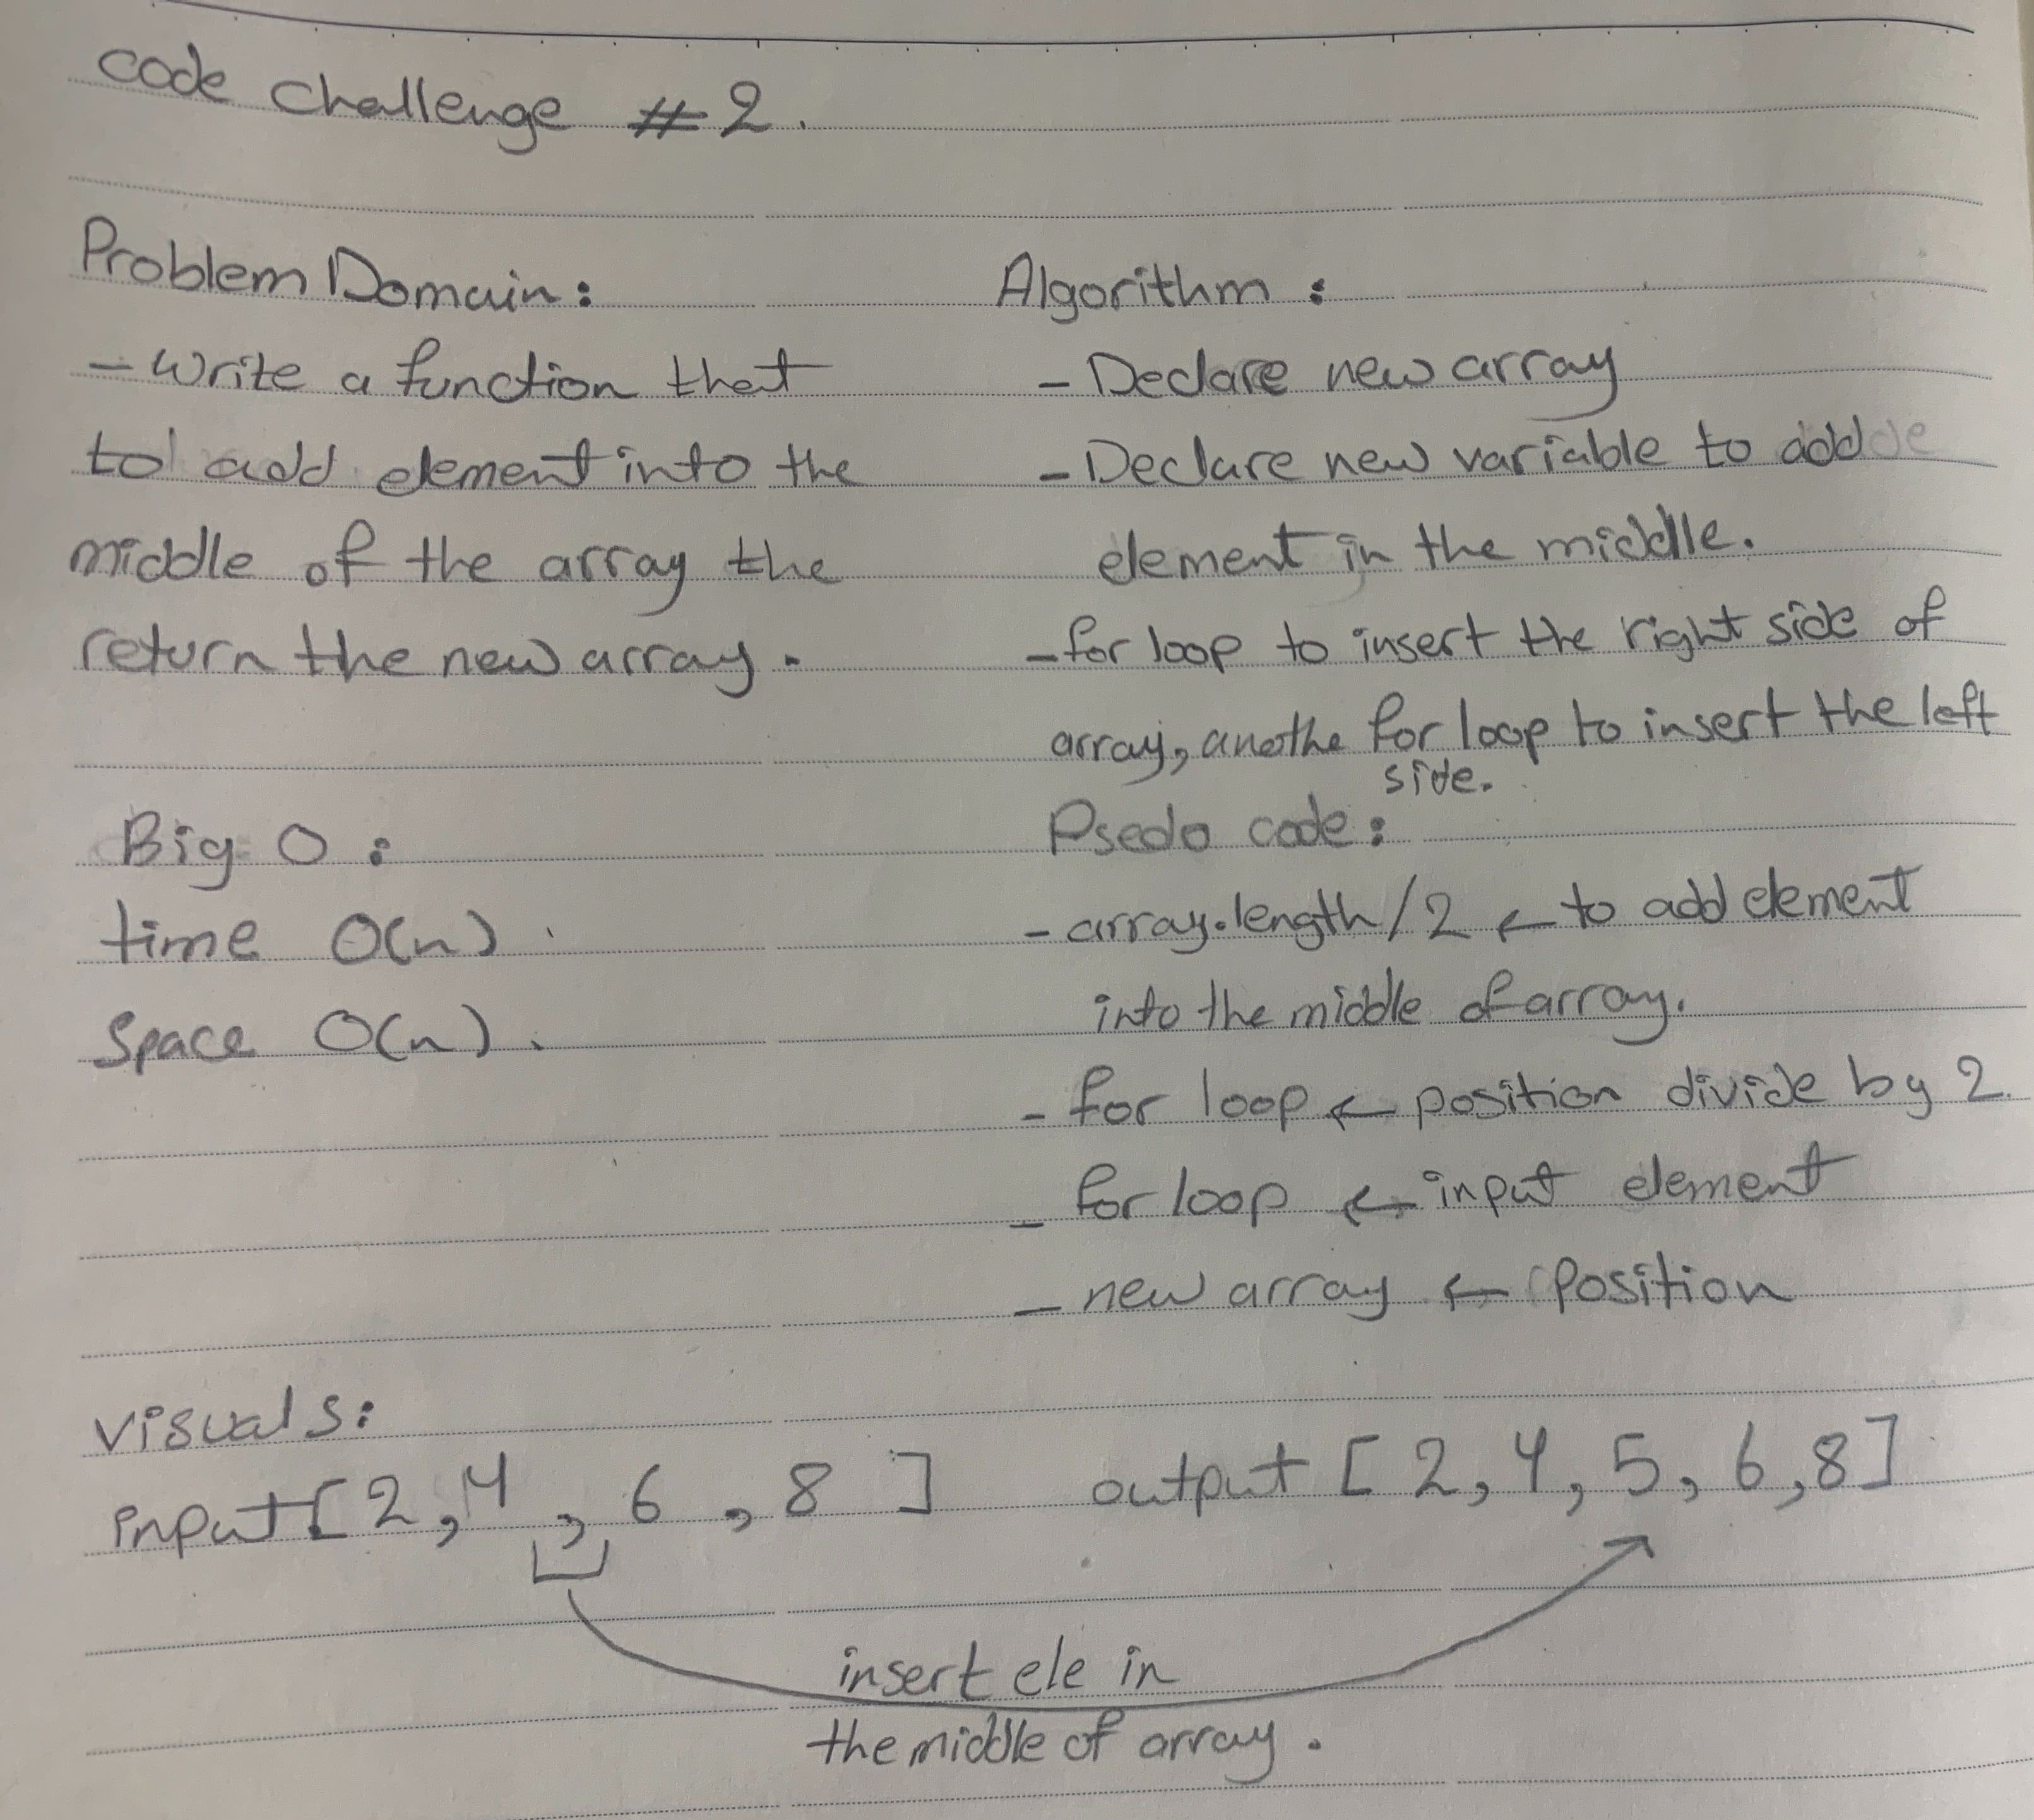 code challenge #2.
Problem Domain:
- Write a function that
to add element into the
middle of the array the
return the new array.
Big O:
time O(n).
Space O(n).
Algorithm:
- Declare new array
- Declare new variable to add
element in the middle.
- for loop to insert the right side of
array, anothe for loop to insert the left
side.
Psedo code:
- array.length/2 ← to add element
into the middle of array.
- for loop ← position divide by 2.
- for loop ← input element
- new array ← position
visuals:
input [2,4 , 6 , 8 ]
output [2,4,5,6,8]
insert ele in
the middle of array.